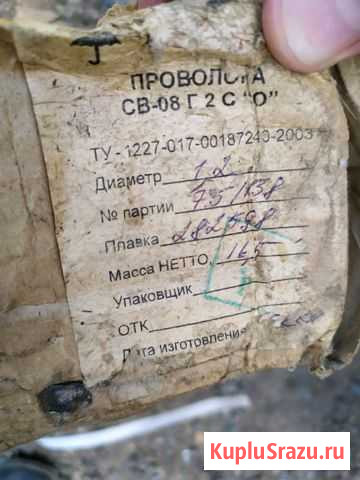 ПРОВОЛОКА
СВ-08 Г 2 С "О"
ТУ - 1227-017-00187240-2003
Диаметр 1,2
№ партии 75/138
Плавка 282598
Масса НЕТТО 16,5
Упаковщик
ОТК
Дата изготовления
KupluSrazu.ru